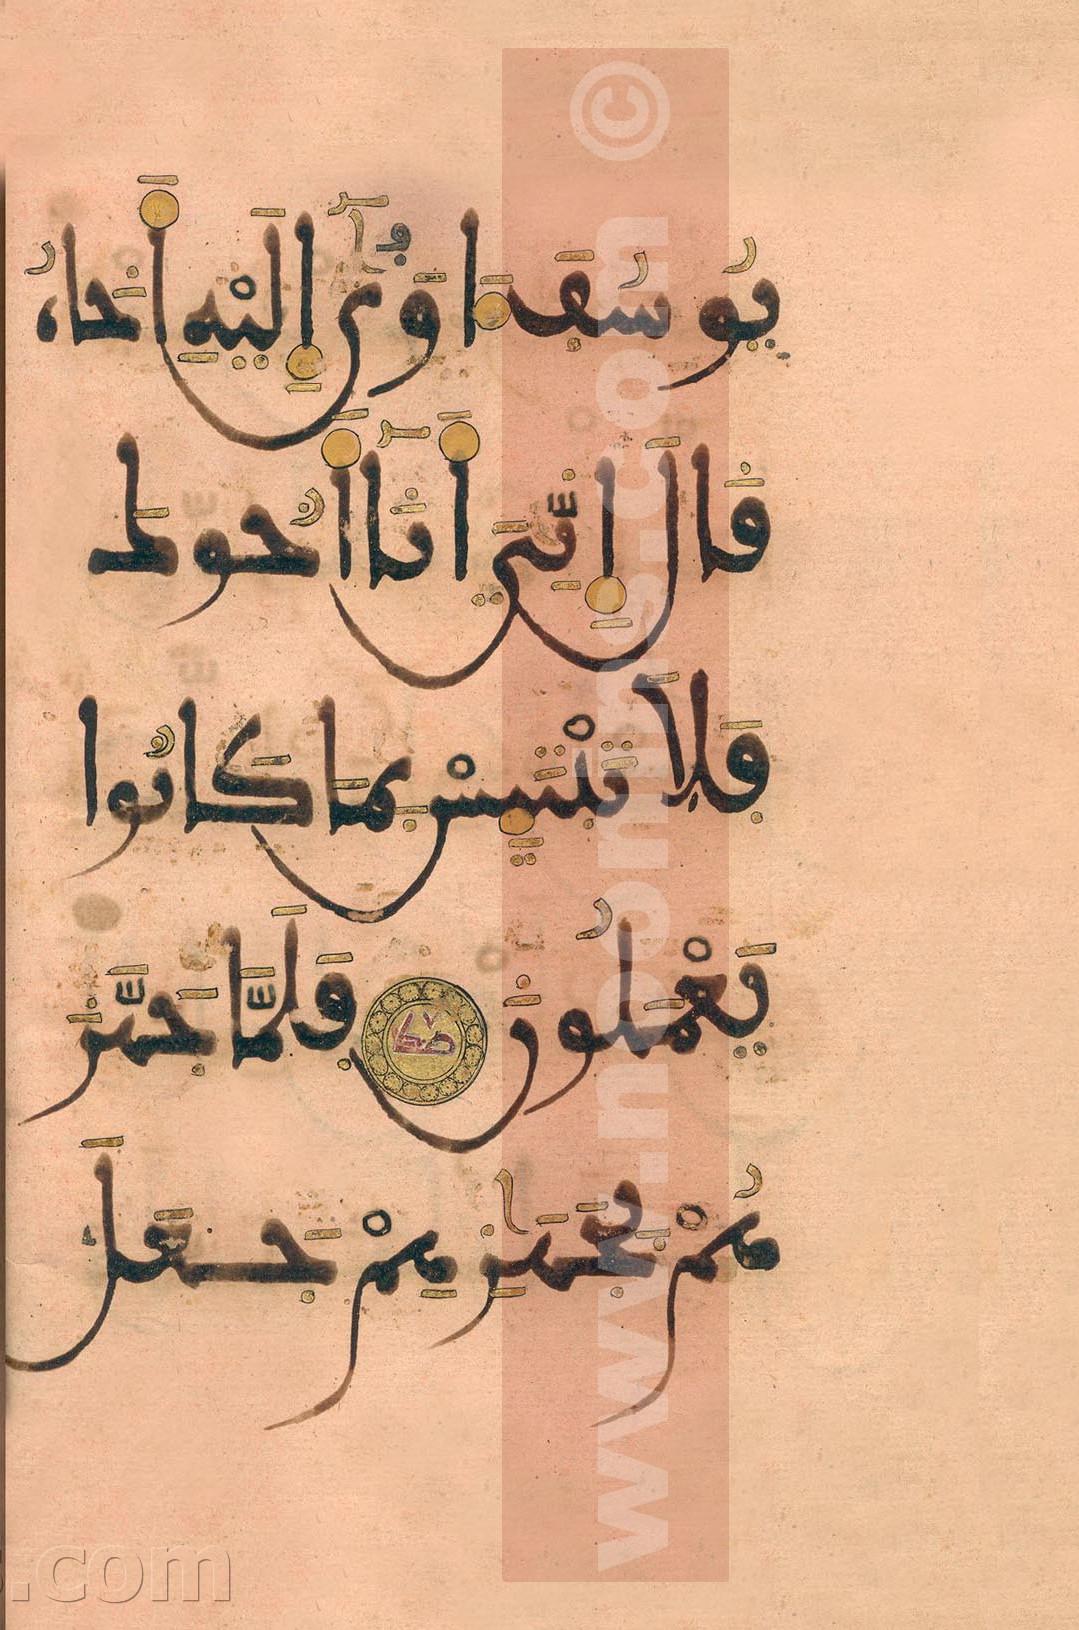 يُوسُفَ ءَاوَىٰ إِلَيْهِ أَخَاهُ
قَالَ إِنِّي أَنَا أَخُوكَ
فَلَا تَبْتَئِسْ بِمَا كَانُوا
يَعْمَلُونَ فَلَمَّا جَهَّزَ
هُمْ بِجَهَازِهِمْ جَعَلَ
s.com